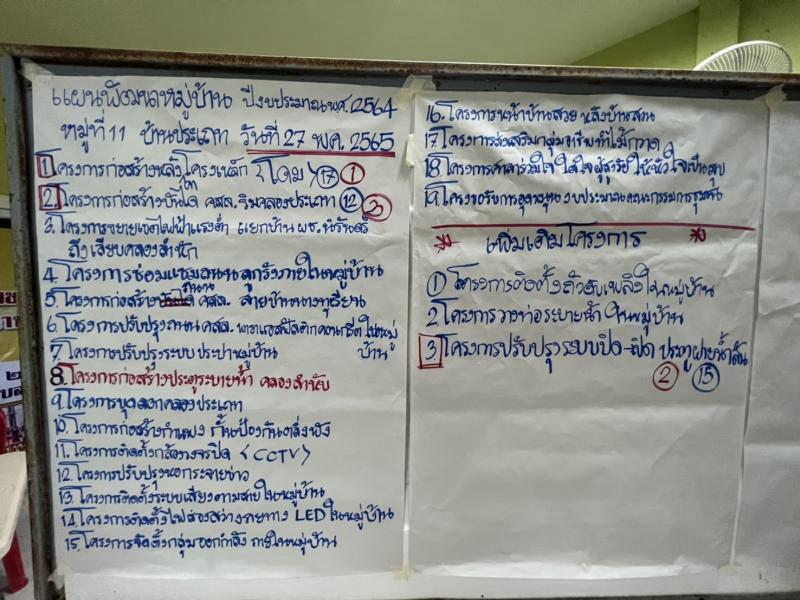 แผนพัฒนาหมู่บ้าน ปีงบประมาณพศ. 2564
หมู่ที่ 11 บ้านประเภท วันที่ 27 พค. 2565
1 โครงการก่อสร้างหลังโครงเหล็ก (โดม) 17 1
2. โครงการก่อสร้าง คสล. ริมคลองประเภท 12 3
3. โครงการขยายเขตไฟฟ้าแรงต่ำ แยกบ้าน ผช. นิรันดร์
ถึงเลียบคลองสำนัก
4. โครงการซ่อมแซมถนนลูกรังภายในหมู่บ้าน
5. โครงการก่อสร้างถนน คสล. สายบ้านนางทุเรียน
6. โครงการปรับปรุงถนน คสล. พาราแอสฟัลติกคอนกรีตในหมู่
บ้าน
7. โครงการปรับปรุงระบบประปาหมู่บ้าน
8. โครงการก่อสร้างประตูระบายน้ำ คลองสำนับ
9. โครงการขุดลอกคลองประเภท
10. โครงการก่อสร้างกำแพง กั้นป้องกันตลิ่งพัง
11. โครงการติดตั้งกล้องวงจรปิด (CCTV)
12. โครงการปรับปรุงหอกระจายข่าว
13. โครงการติดตั้งระบบเสียงตามสายในหมู่บ้าน
14. โครงการติดตั้งไฟส่องสว่างรายทาง LED ในหมู่บ้าน
15. โครงการจัดตั้งกลุ่มออกกำลัง ภายในหมู่บ้าน
16. โครงการหน้าบ้านสวย หลังบ้านสวน
17 โครงการส่งเสริมกลุ่มอาชีพทำไม้กวาด
18 โครงการศาลาร่วมใจ ใส่ใจผู้สูงวัย ให้หัวใจเป็นสุข
19. โครงขอรับการอุดหนุนงบประมาณคณะกรรมการชุมชน
เพิ่มเติมโครงการ
1 โครงการติดตั้งถังดับเพลิงในหมู่บ้าน
2 โครงการวางท่อระบายน้ำในหมู่บ้าน
3 โครงการปรับปรุงระบบปิด-เปิด ประตูฝายน้ำล้น
2 15